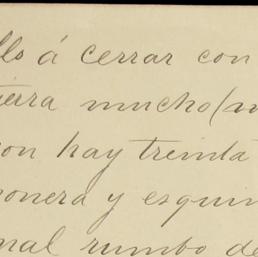 lls á cerrar con
ierra mucho (m
on hay treinta
onera y esquin
nal rumbo de